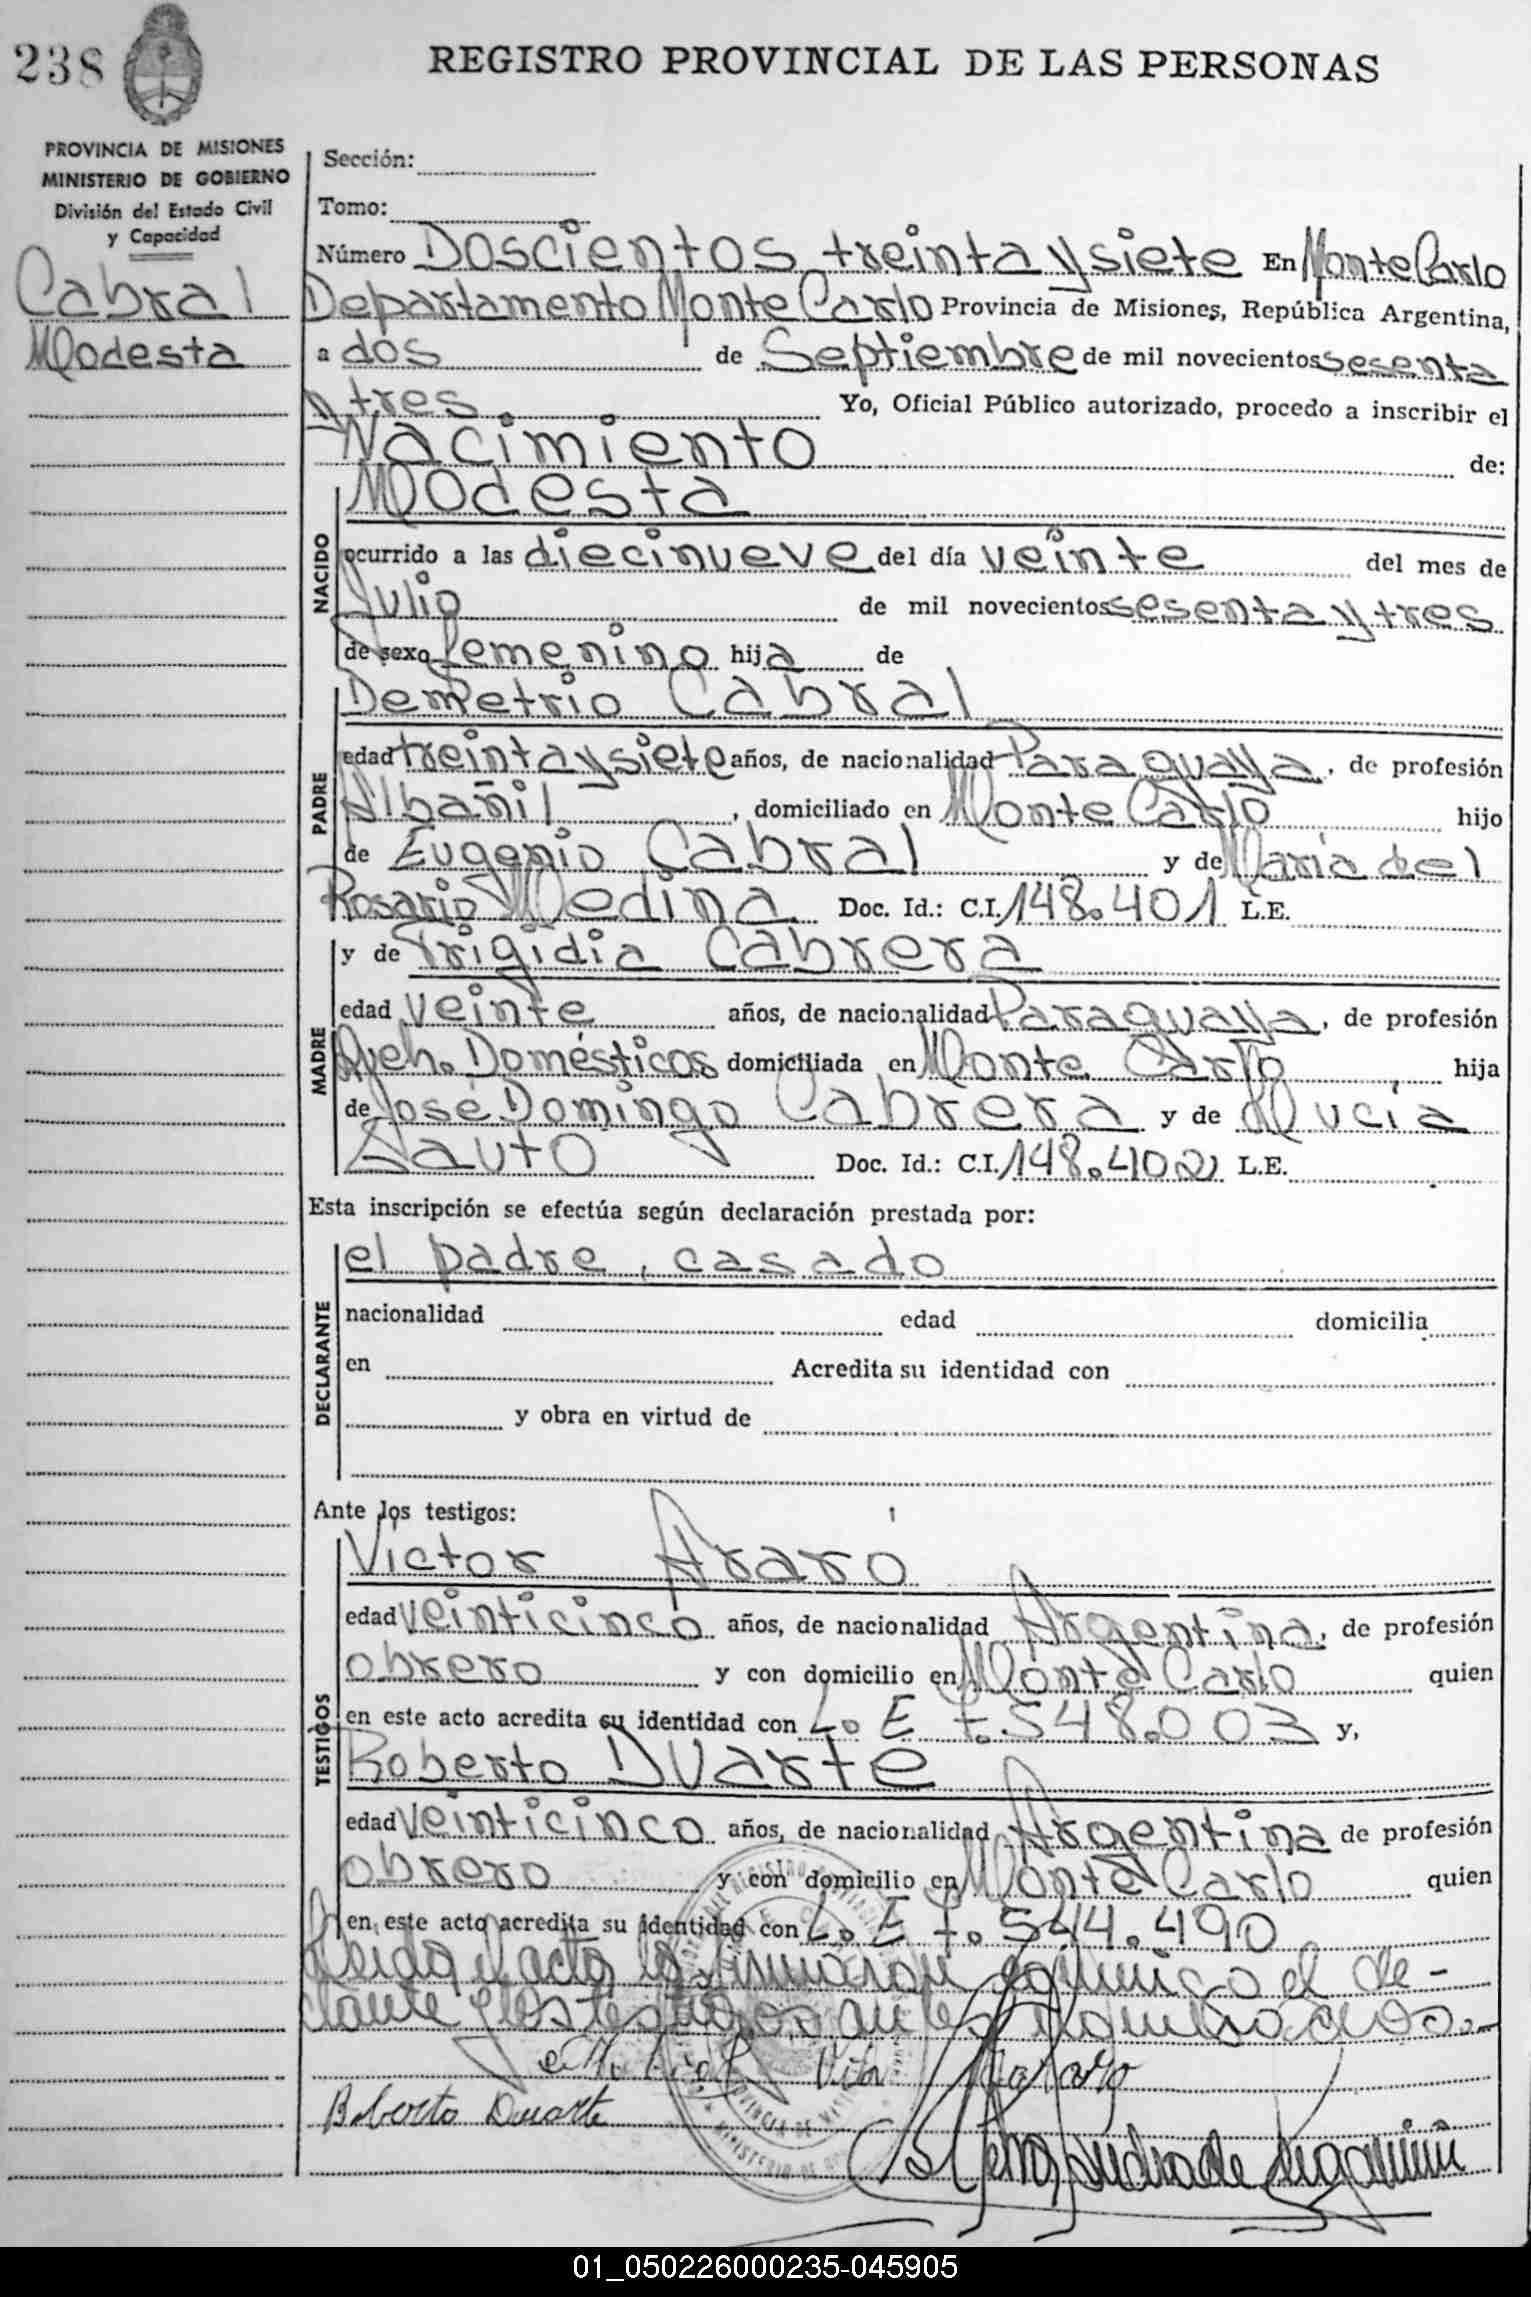 238
REGISTRO PROVINCIAL DE LAS PERSONAS
PROVINCIA DE MISIONES
MINISTERIO DE GOBIERNO
División del Estado Civil
y Capacidad
Cabral
Modesta
Sección:
Tomo:
Número Doscientos treinta y siete En Monte Carlo
Departamento Monte Carlo Provincia de Misiones, República Argentina,
a dos de Septiembre de mil novecientos sesenta
y tres. Yo, Oficial Público autorizado, procedo a inscribir el
Nacimiento de:
NACIDO
Modesta
ocurrido a las diecinueve del día veinte del mes de
Julio de mil novecientos sesenta y tres
de sexo femenino hija de
PADRE
Demetrio Cabral
edad treinta y siete años, de nacionalidad Paraguaya, de profesión
Albañil, domiciliado en Monte Carlo hijo
de Eugenio Cabral y de María del
Rosario Medina Doc. Id.: C.I. 148.401 L.E.
MADRE
y de Frigidia Cabrera
edad veinte años, de nacionalidad Paraguaya, de profesión
Qeh. Domésticos domiciliada en Monte Carlo hija
de José Domingo Cabrera y de Lucía
Sauto Doc. Id.: C.I. 148.402 L.E.
Esta inscripción se efectúa según declaración prestada por:
DECLARANTE
el padre, casado
nacionalidad edad domicilia
en Acredita su identidad con
y obra en virtud de
Ante los testigos:
TESTIGOS
Victor Araro
edad veinticinco años, de nacionalidad Argentina, de profesión
obrero y con domicilio en Monte Carlo quien
en este acto acredita su identidad con L. E 7.548.003 y,
Roberto Duarte
edad veinticinco años, de nacionalidad Argentina de profesión
obrero y con domicilio en Monte Carlo quien
en este acto acredita su identidad con L. E 7.544.490
Leida el acta la firmaron conmigo el de-
clarante y los testigos antes nombrados.-
Roberto Duarte
01_050226000235-045905